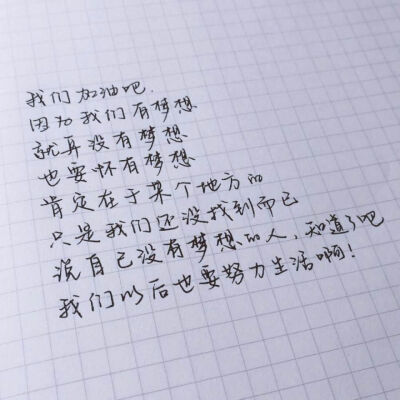 我们加油吧.
因为我们有梦想
就算没有梦想
也要怀有梦想
肯定在于某个地方的
只是我们还没找到而已
说自己没有梦想的人,知道了吧
我们以后也要努力生活啊!